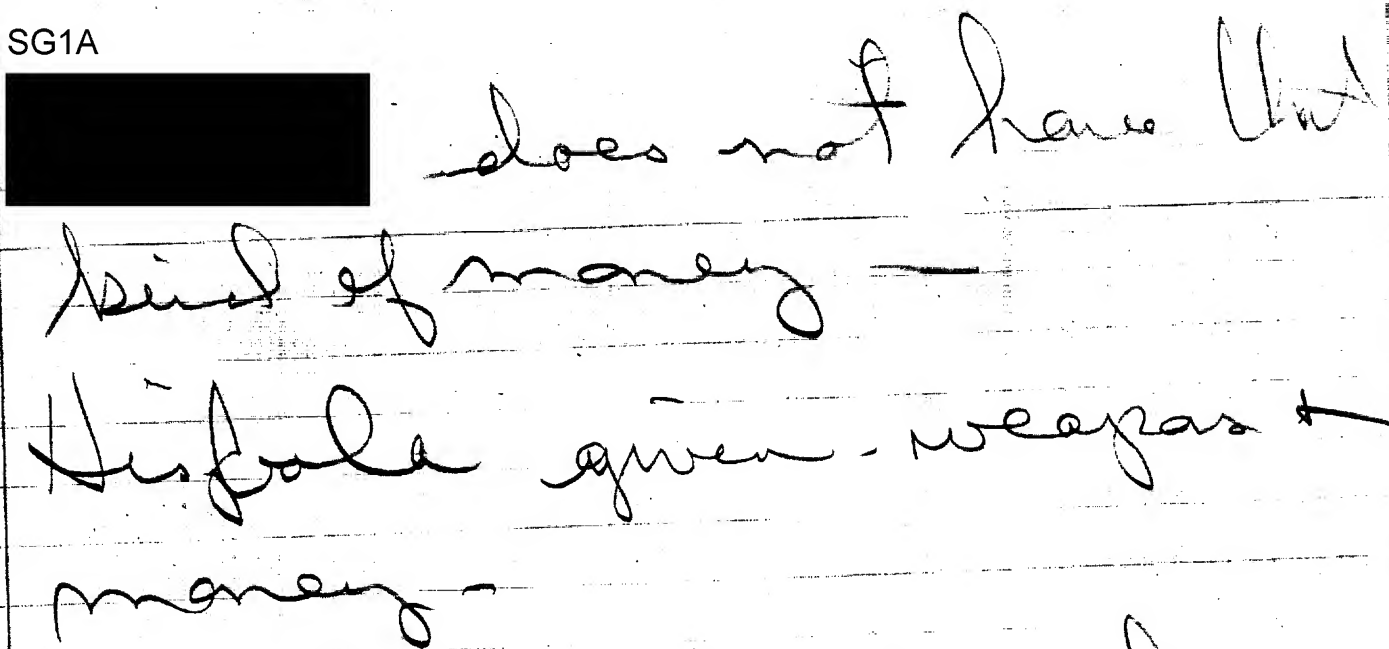 SG1A
does not have that
kind of money —
Hisbola given - weapas +
money -